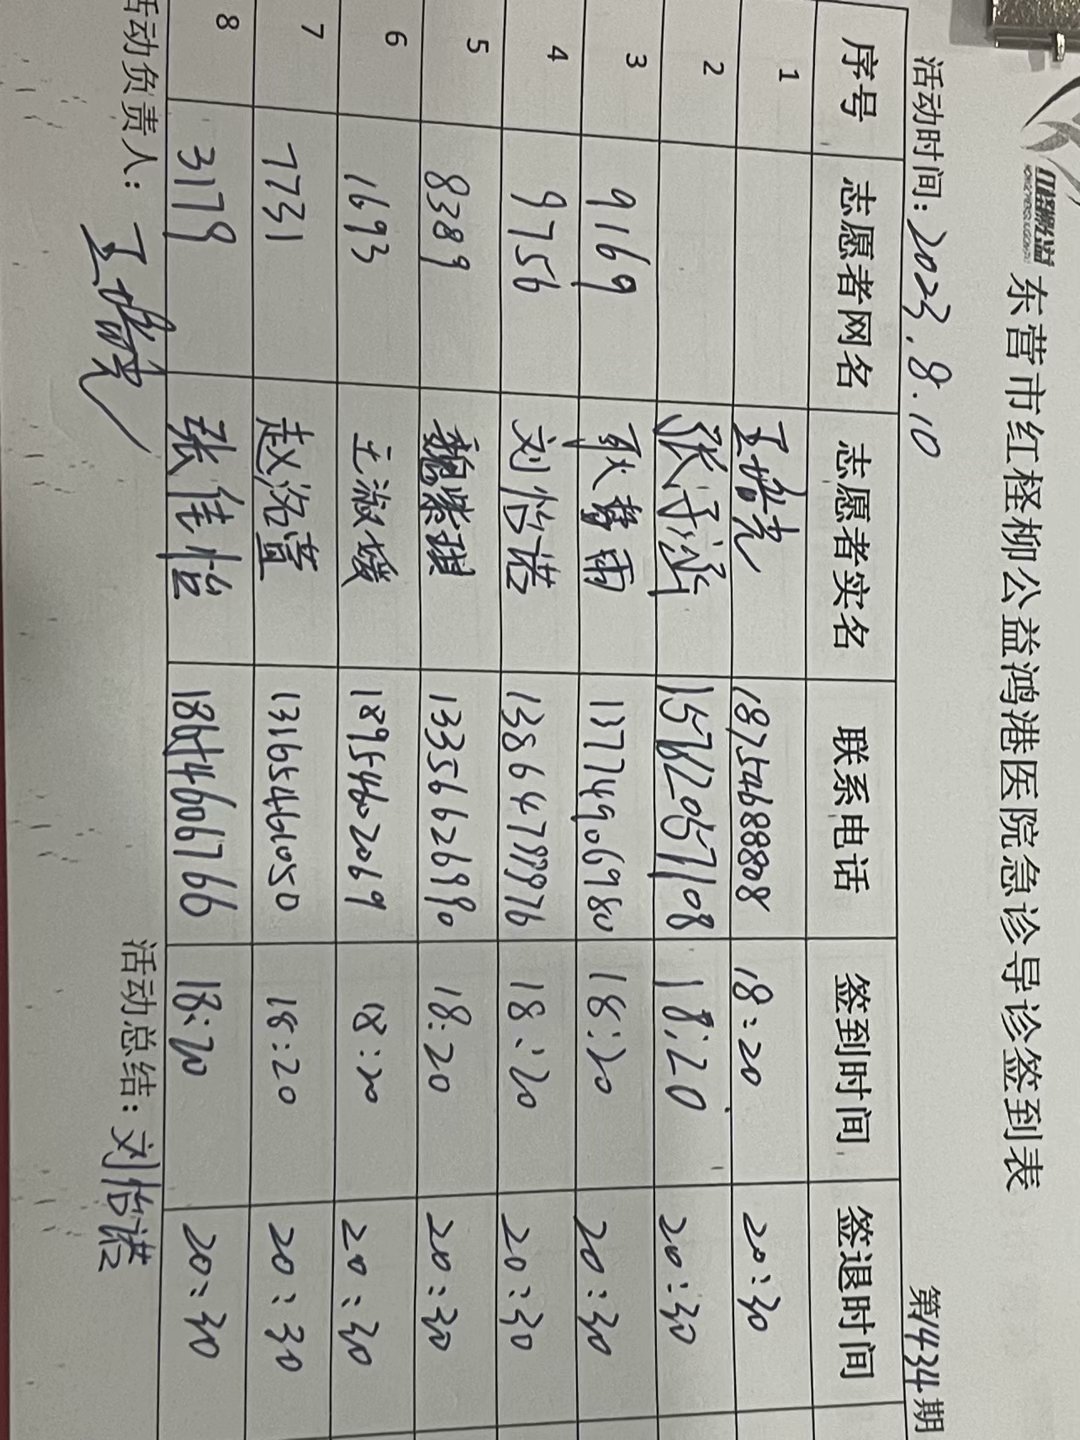 红柽柳公益
东营市红柽柳公益鸿港医院急诊导诊签到表
活动时间：2023.8.10 第1434期
序号 志愿者网名 志愿者实名 联系电话 签到时间 签退时间
1 18754688808 18:20 20:30
2 张子涵 15762057108 18:20 20:30
3 9169 耿梦雨 13774906980 18:20 20:30
4 9756 刘怡诺 18:20 20:30
5 8389 魏紫琪 13356626990 18:20 20:30
6 1693 王淑媛 18954602069 18:20 20:30
7 7731 赵洺萱 13165461050 18:20 20:30
8 3179 张佳怡 18654606766 18:20 20:30
活动负责人： 活动总结：刘怡诺